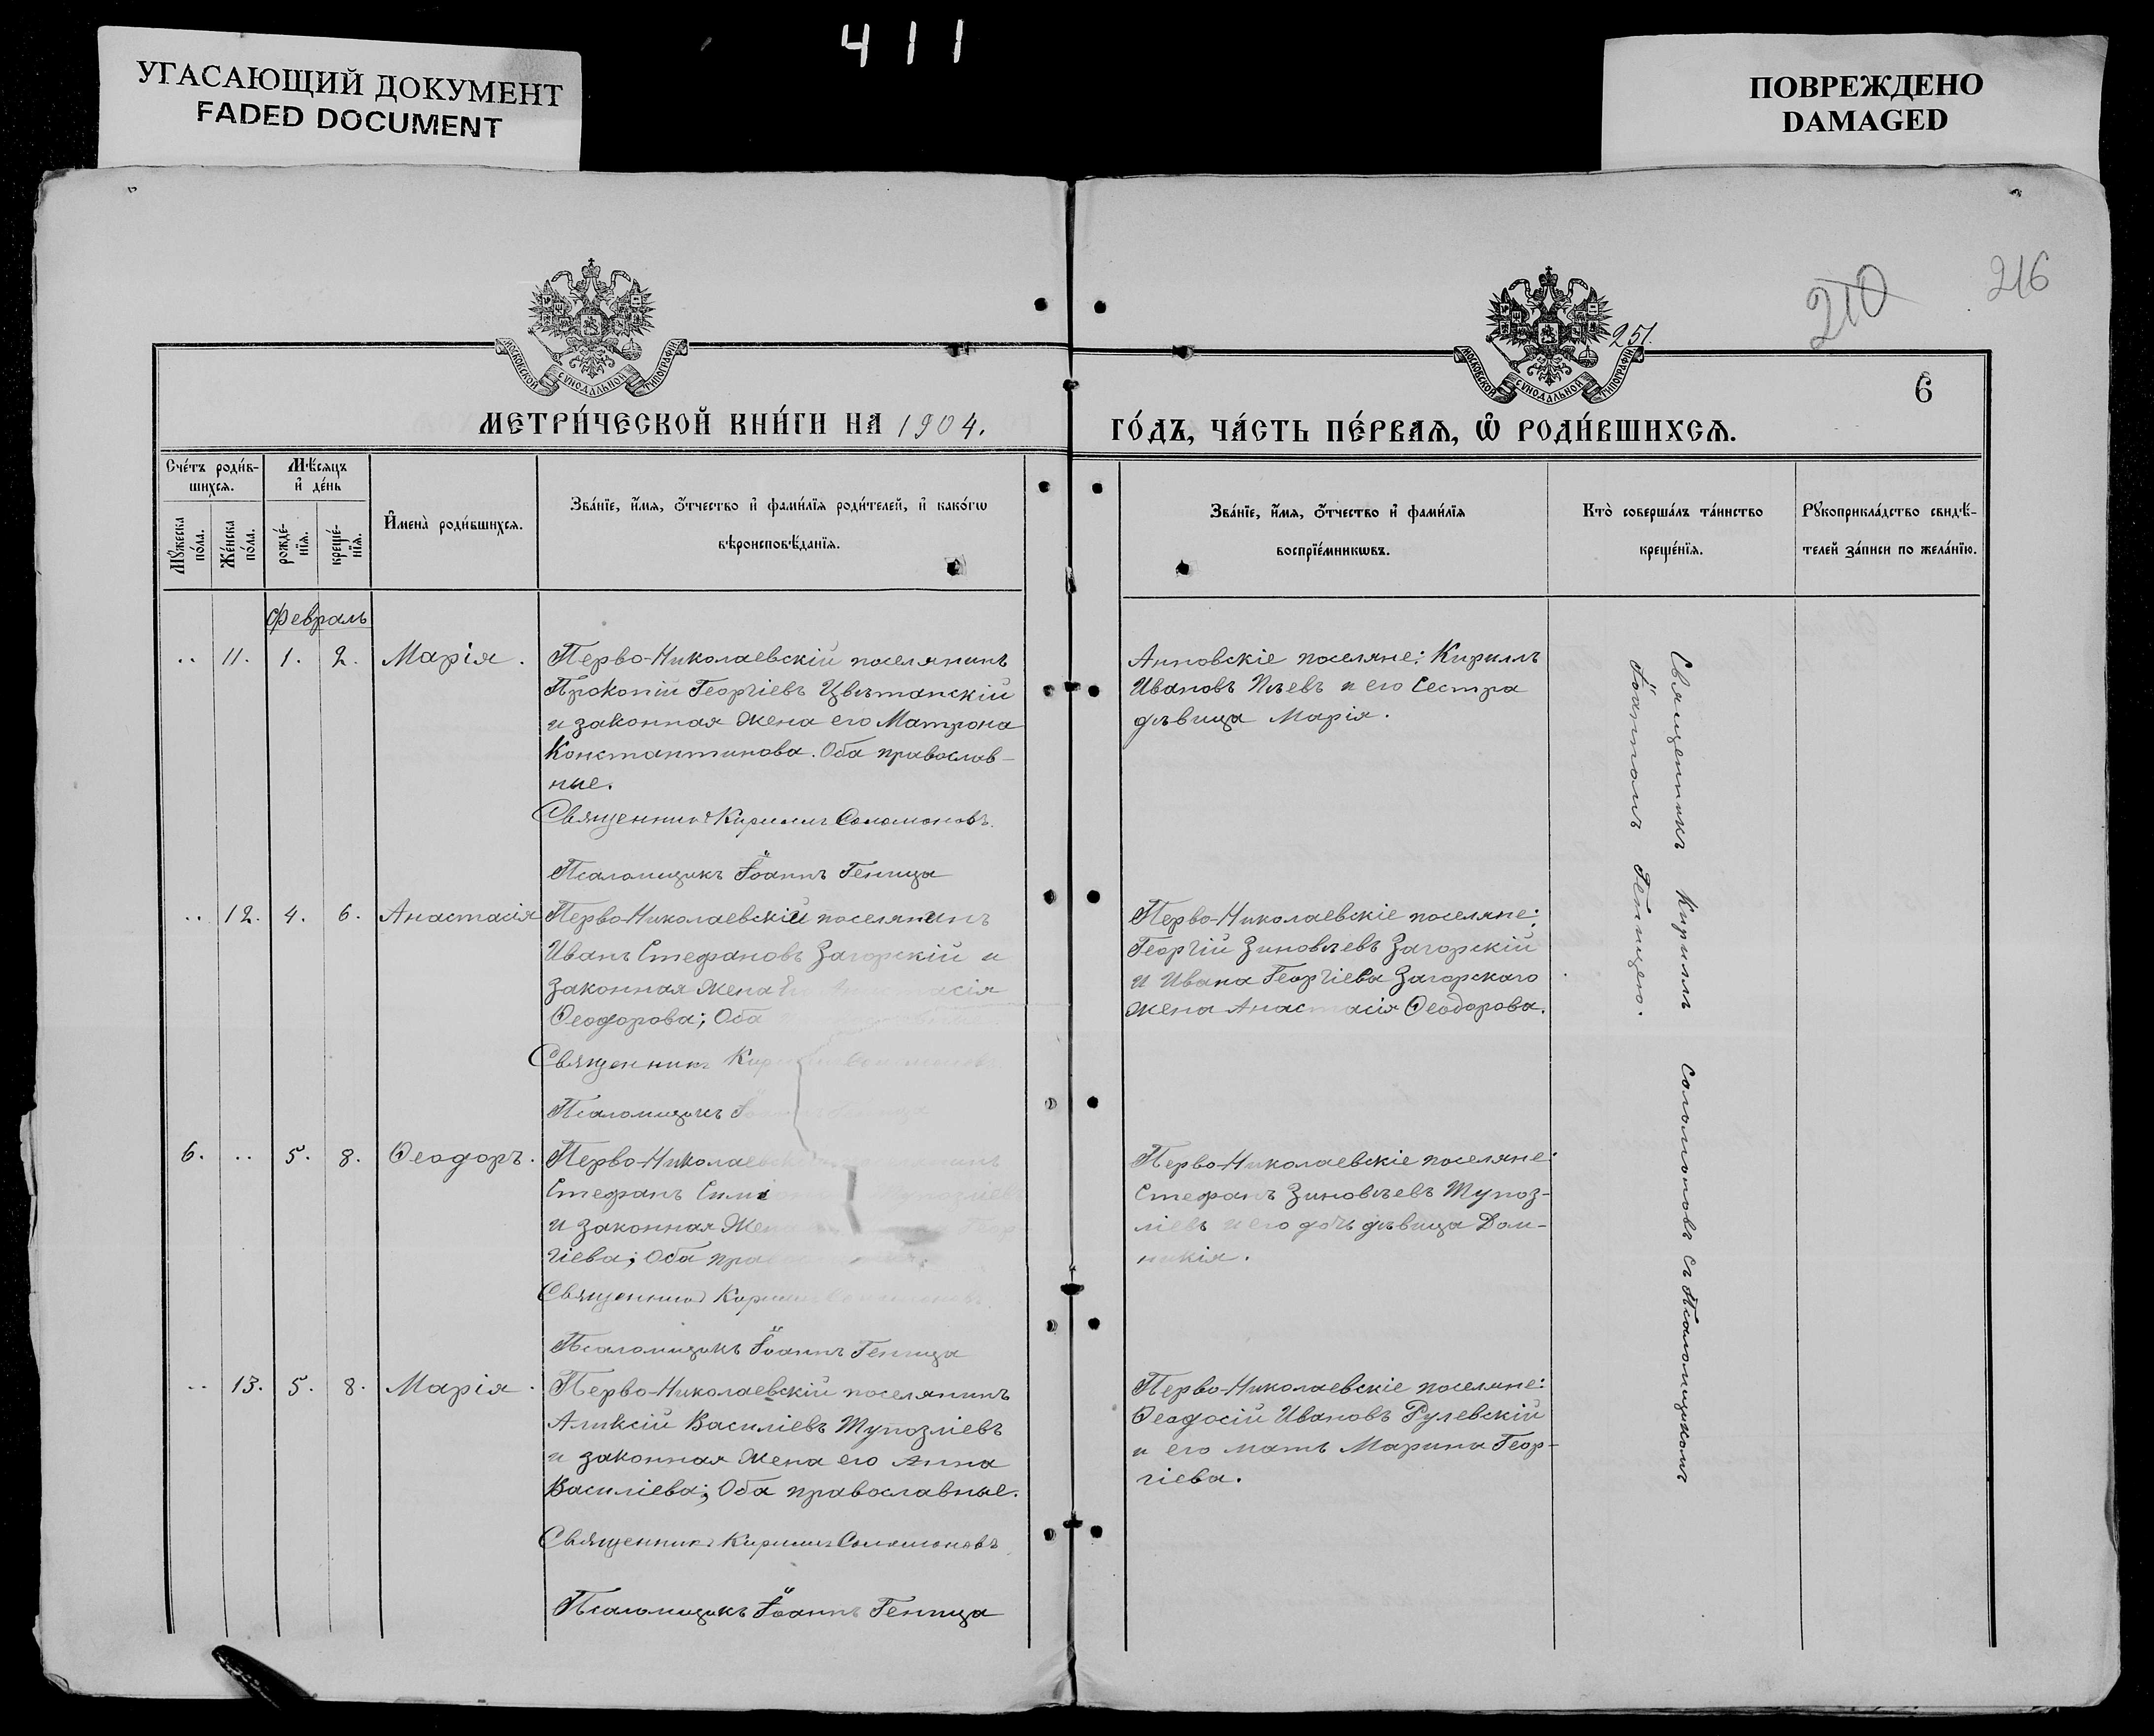 411
УГАСАЮЩИЙ ДОКУМЕНТ
FADED DOCUMENT
ПОВРЕЖДЕНО
DAMAGED
216
210
251.
6
МОСКОВСКОЙ СУНОДАЛЬНОЙ ТИПОГРАФІИ
МОСКОВСКОЙ СУНОДАЛЬНОЙ ТИПОГРАФІИ
МЕТРИ́ЧЕСКОЙ КНИ́ГИ НА 1904.
ГО́ДЪ, ЧА́СТЬ ПЕ́РВАѦ, Ѽ РОДИ́ВШИХСѦ.
Сче́тъ роди́в-
шихсѧ.
Мꙋ́жеска по́ла.
Же́нска по́ла.
Мѣ́сяцъ
и҆ де́нь
рожде́-
нїѧ.
креще́-
нїѧ.
И҆мена̀ роди́вшихсѧ.
Зва́нїе, и҆́мѧ, ѻ҆́тчество и҆ фами́лїѧ роди́телей, и҆ како́гѡ
вѣроисповѣ́данїѧ.
Зва́нїе, и҆́мѧ, ѻ҆́тчество и҆ фами́лїѧ
воспрїе́мникѡвъ.
Кто̀ соверша́лъ та́инство
креще́нїѧ.
Рꙋкоприкла́дство свидѣ́-
телей за́писи по жела́нїю.
Февраль
.. 11. 1. 2. Марія.
Перво-Николаевскій поселянинъ
Прокопій Георгіевъ Цвѣтанскій
и законная жена его Матрона
Константинова. Оба православ-
ные.
Священникъ Кириллъ Соломоновъ.
Псаломщикъ Іоаннъ Геница
Анновскіе поселяне: Кириллъ
Ивановъ Пѣевъ и его сестра
дѣвица Марія.
.. 12. 4. 6. Анастасія
Перво-Николаевскій поселянинъ
Иванъ Стефановъ Загорскій и
законная жена его Анастасія
Ѳеодорова; Оба
Священникъ Кириллъ Соломоновъ
Псаломщикъ
Перво-Николаевскіе поселяне:
Георгій Зиновѣевъ Загорскій
и Ивана Георгіева Загорскаго
жена Анастасія Ѳеодорова.
6. .. 5. 8. Ѳеодоръ.
Перво-Николаевскій поселянинъ
Стефанъ Тупозліевъ
и законная жена Геор-
гіева; Оба
Священникъ Кириллъ Соломоновъ
Псаломщикъ Іоаннъ Геница
Перво-Николаевскіе поселяне:
Стефанъ Зиновѣевъ Тупоз-
ліевъ и его дочь дѣвица Дом-
никія.
.. 13. 5. 8. Марія.
Перво-Николаевскій поселянинъ
Аликсій Василіевъ Тупозліевъ
и законная жена его Анна
Василіева; Оба православные.
Священникъ Кириллъ Соломоновъ
Псаломщикъ Іоаннъ Геница
Перво-Николаевскіе поселяне:
Ѳеодосій Ивановъ Рулевскій
и его мать Марина Геор-
гіева.
Священникъ Кириллъ Соломоновъ съ Псаломщикомъ
Іоанномъ Геницею.